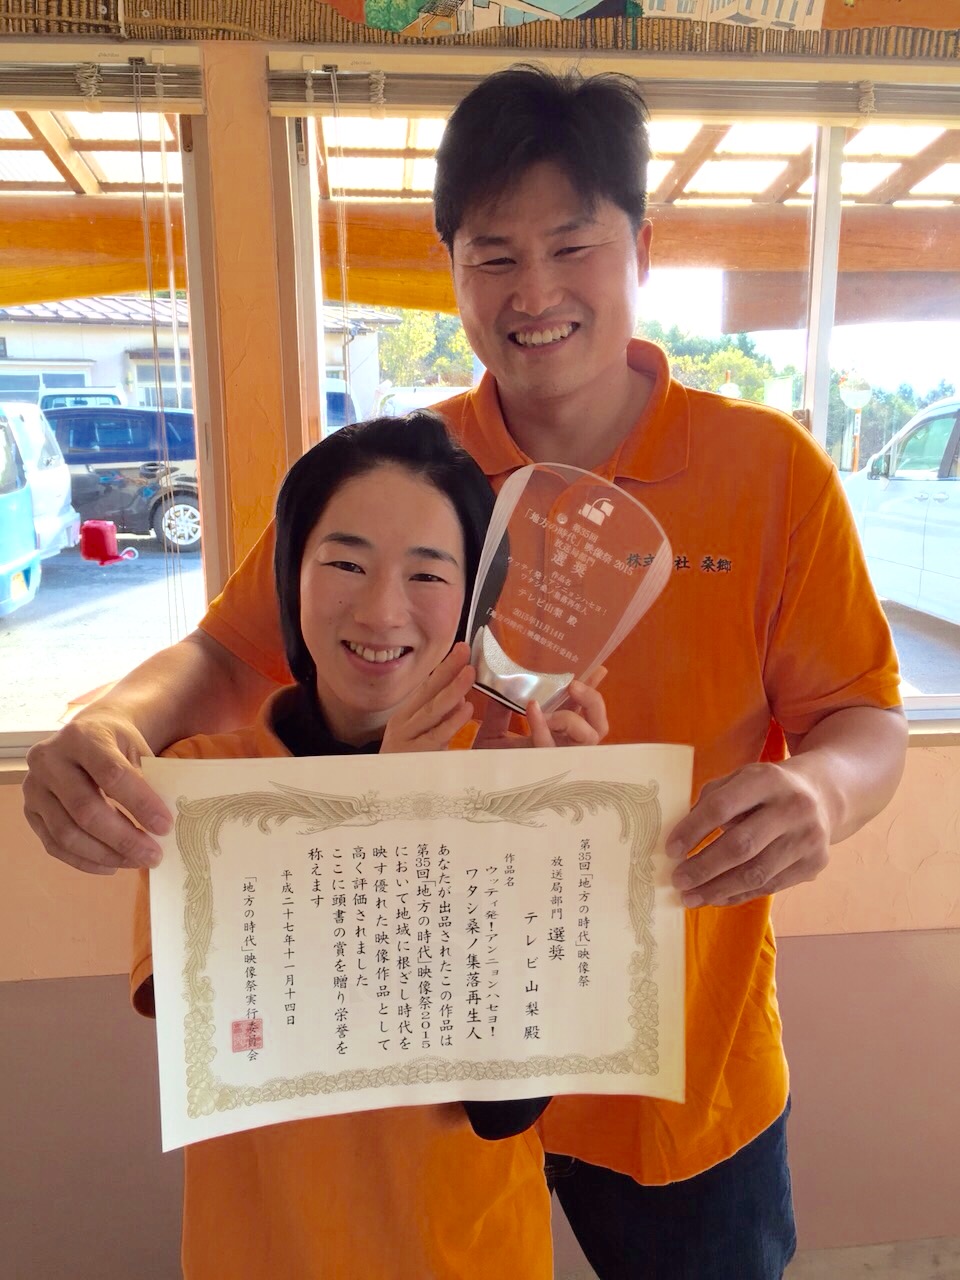 第35回
「地方の時代」映像祭 2015
放送局部門
選奨
作品名
ウッティ発!アンニョンハセヨ!
ワタシ桑ノ集落再生人
テレビ山梨 殿
2015年11月14日
「地方の時代」映像祭実行委員会
株式会社 桑郷
第35回「地方の時代」映像祭
放送局部門 選奨
テレビ山梨 殿
作品名
ウッティ発!アンニョンハセヨ!
ワタシ桑ノ集落再生人
あなたが出品されたこの作品は
第35回「地方の時代」映像祭2015
において地域に根ざし時代を
映す優れた映像作品として
高く評価されました
ここに頭書の賞を贈り栄誉を
称えます
平成二十七年十一月十四日
「地方の時代」映像祭実行委員会